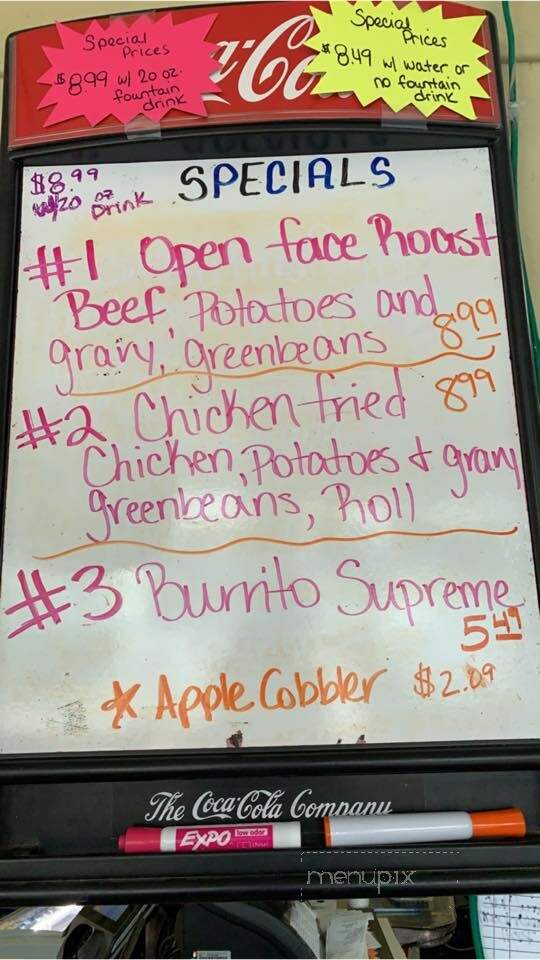 Special
Prices
$8.99 w/ 20 oz.
fountain
drink
Special
Prices
$8.49 w/ water or
no fountain
drink
a-Co
$8.99
w/20 oz Drink
SPECIALS
#1 Open face Roast
Beef, Potatoes and
gravy, greenbeans 8.99
#2 Chicken fried 8.99
Chicken, Potatoes & gravy
greenbeans, Roll
#3 Burrito Supreme
5.49
* Apple Cobbler $2.09
The Coca-Cola Company
EXPO low odor
menupix